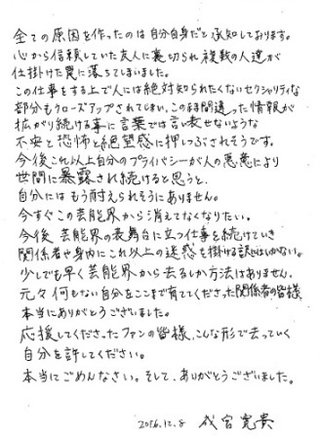 全ての原因を作ったのは自分自身だと承知しております。
心から信頼していた友人に裏切られ複数の人達が
仕掛けた罠に落ちてしまいました。
この仕事をする上で人には絶対知られたくないセクシャリティな
部分もクローズアップされてしまい、このまま間違った情報が
拡がり続ける事に言葉では言い表せないような
不安と恐怖と絶望感に押しつぶされそうです。
今後これ以上自分のプライバシーが人の悪意により
世間に暴露され続けると思うと、
自分にはもう耐えられそうにありません。
今すぐこの芸能界から消えてなくなりたい。
今後芸能界の表舞台に立つ仕事を続けていき
関係者や身内にこれ以上の迷惑も掛ける訳にはいかない。
少しでも早く芸能界から去るしか方法はありません。
元々何もない自分をここまで育ててくださった関係者の皆様
本当にありがとうございました。
応援してくださったファンの皆様、こんな形で去っていく
自分を許してください。
本当にごめんなさい。そして、ありがとうございました。
2016.12.8 成宮寛貴